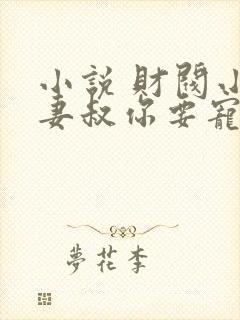 小說財閥小
妻叔你要寵
夢花李